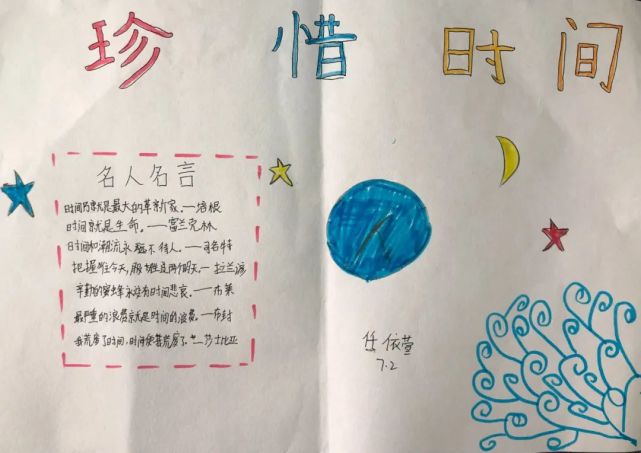 珍惜时间
名人名言
时间乃是最大的革新家。——培根
时间就是生命。——富兰克林
时间和潮流永远不待人。——司各特
把握住今天,胜过两个明天——拉兰派
辛勤的蜜蜂永没有时间悲哀。——布莱
最严重的浪费就是时间的浪费。——布封
我荒废了时间,时间便把我荒废了。——莎士比亚
任依萱
7.2